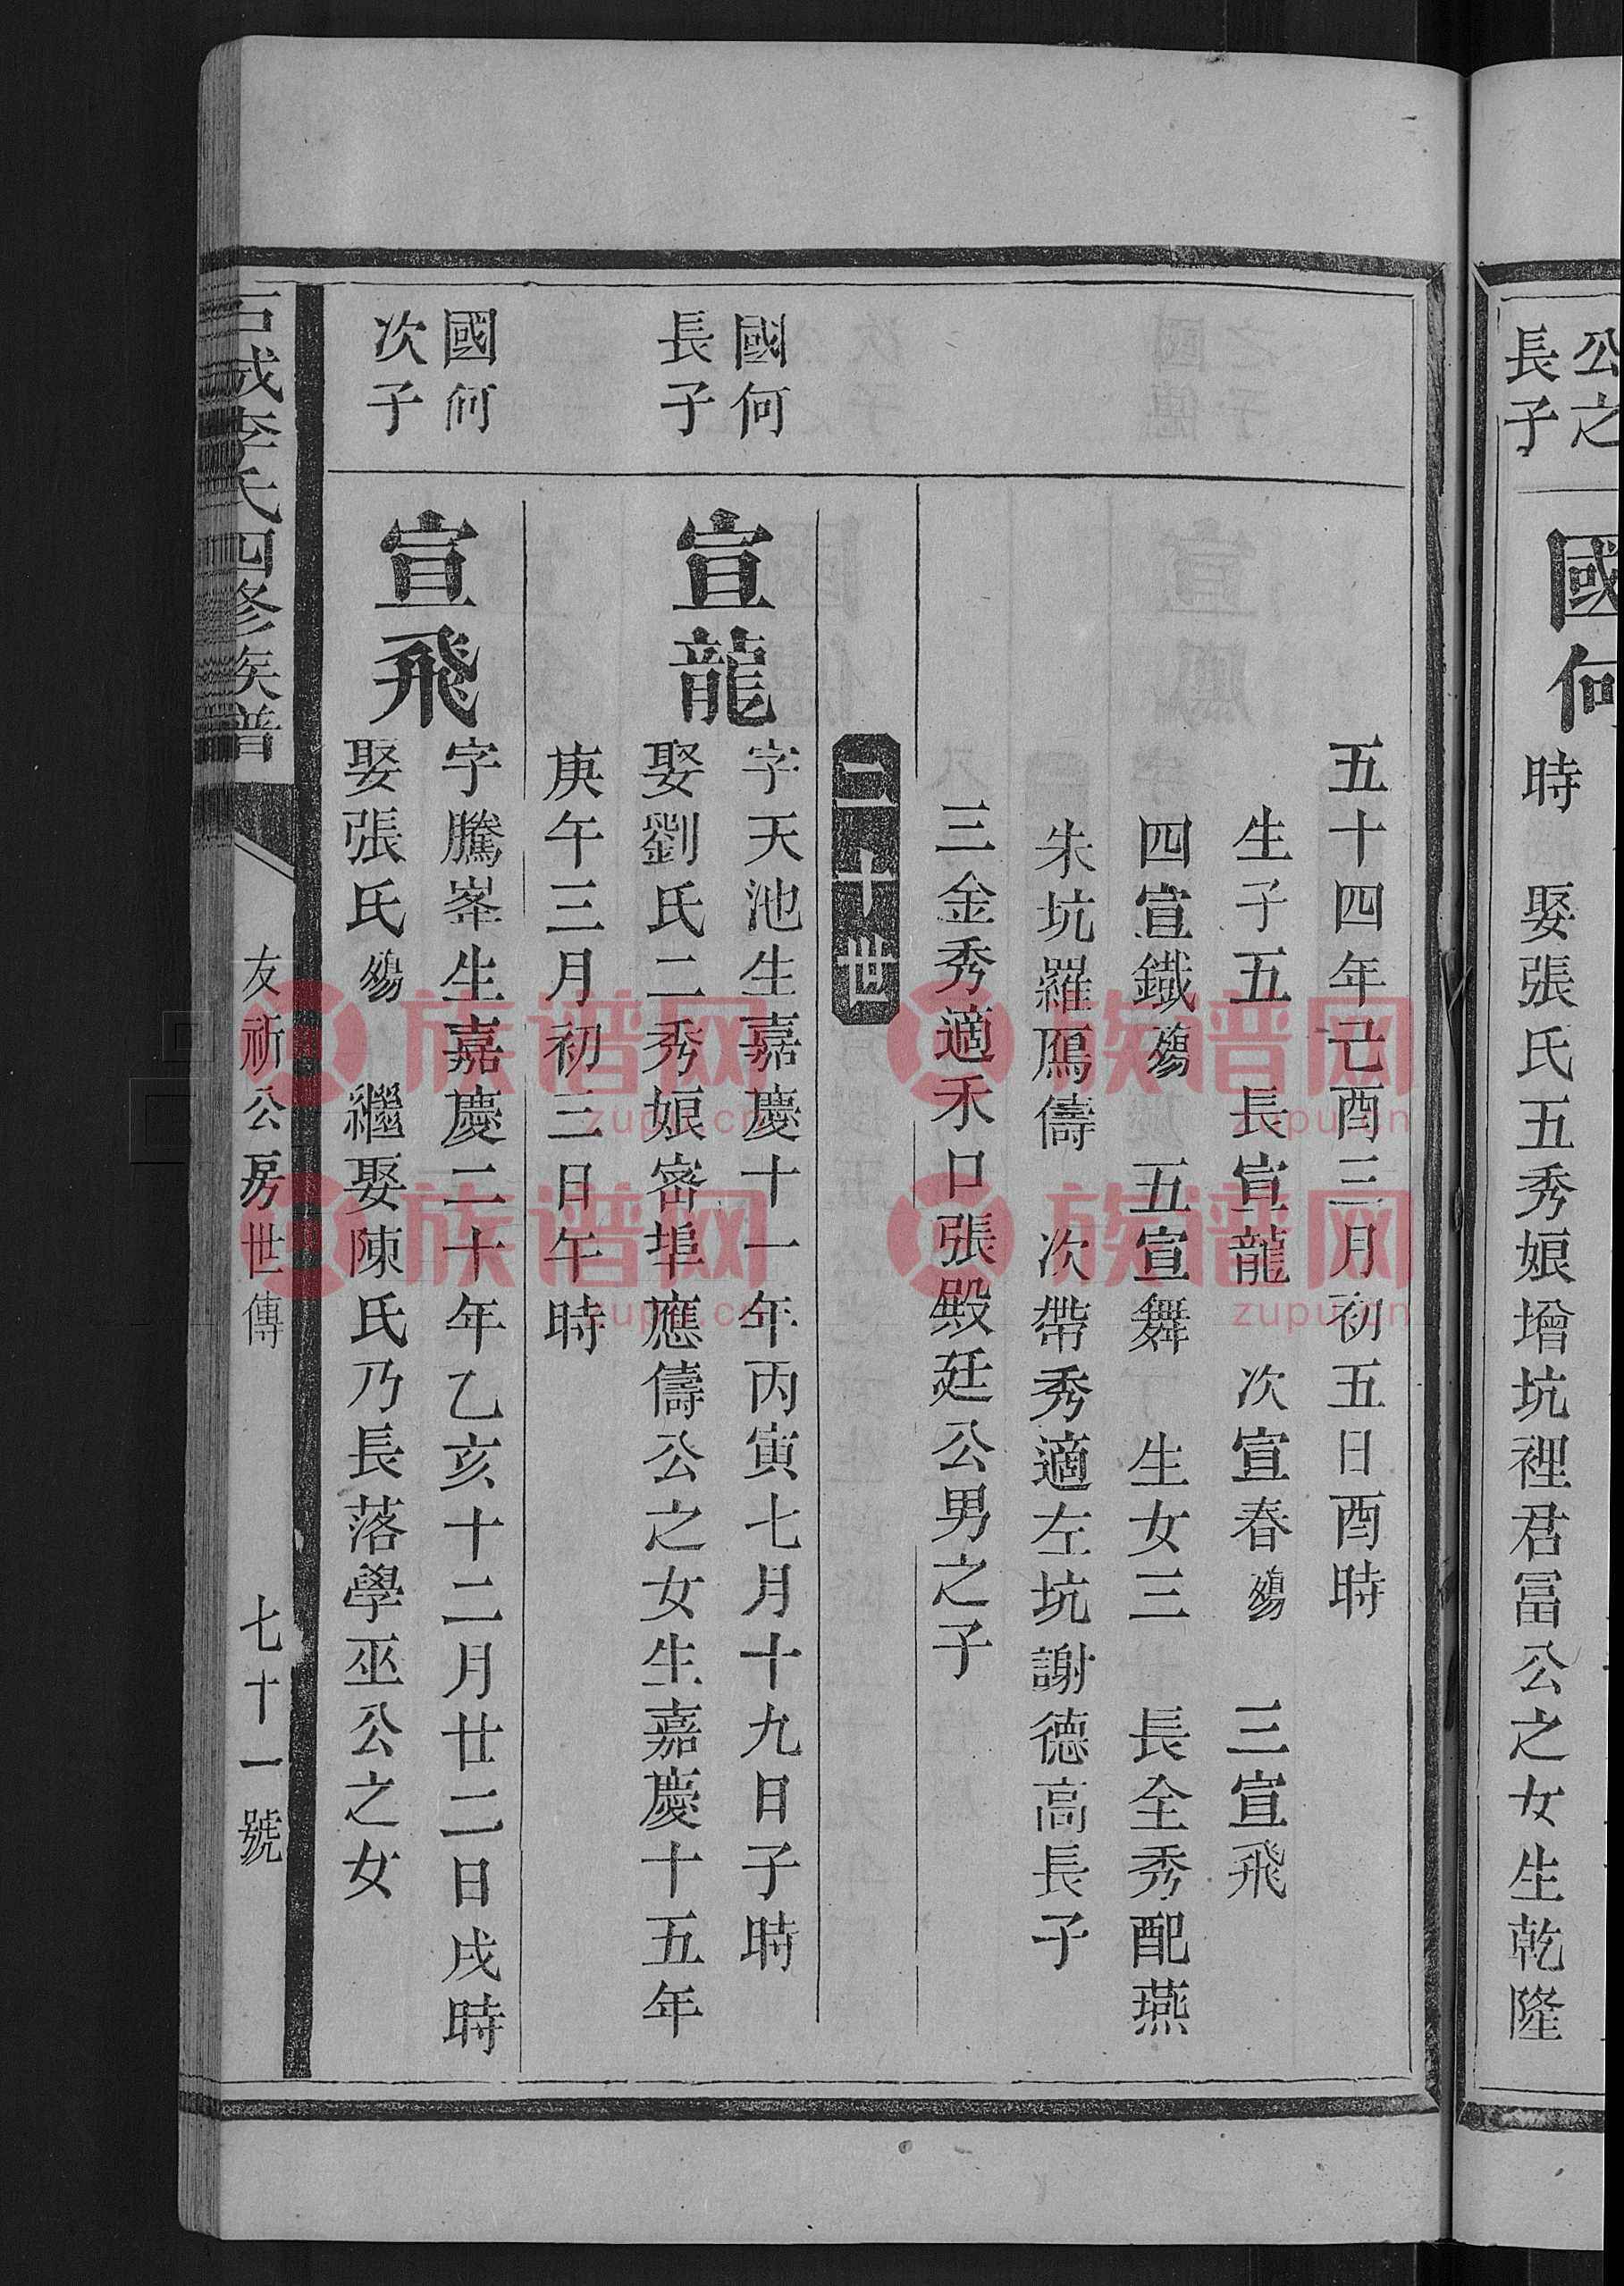 公之
長子
國何
時　娶張氏五秀娘增坑裡君冨公之女生乾隆
五十四年己酉三月初五日酉時
生子五　長宣龍　次宣春殤　三宣飛
四宣鐵殤　五宣舞　生女三　長全秀配燕
朱坑羅鴈儔　次帶秀適左坑謝德高長子
三金秀適禾口張殿廷公男之子
二十世
國何
長子
宣龍
字天池生嘉慶十一年丙寅七月十九日子時
娶劉氏二秀娘密埠應儔公之女生嘉慶十五年
庚午三月初三日午時
國何
次子
宣飛
字騰峯生嘉慶二十年乙亥十二月廿二日戌時
娶張氏殤　繼娶陳氏乃長落學巫公之女
城李氏四修族譜
友祈公房世傳
七十一號
族谱网
zupu.cn
族谱网
zupu.cn
族谱网
zupu.cn
族谱网
zupu.cn